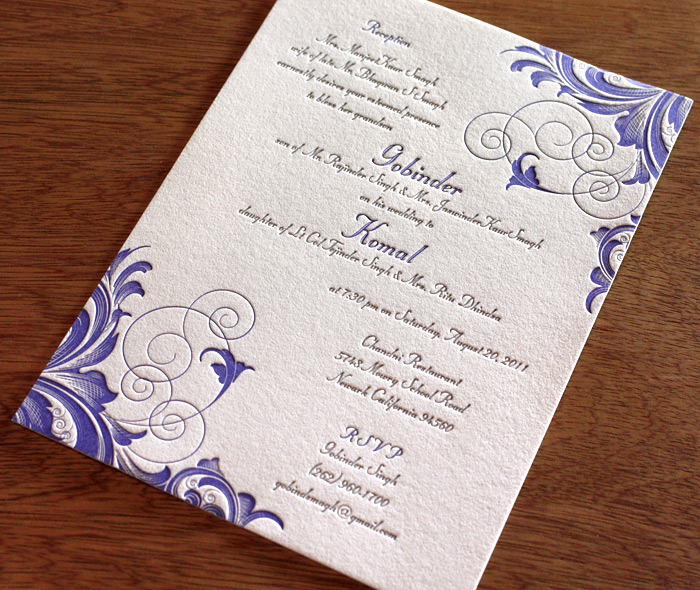 Reception
Mrs. Manjeet Kaur Sangh
wife of late Mr. Bhagwan S Sangh
earnestly desires your esteemed presence
to bless her grandson
Gobinder
son of Mr. Rajinder Singh & Mrs. Jaswinder Kaur Sangh
on his wedding to
Komal
daughter of Lt Col Tejinder Singh & Mrs. Rita Dhindsa
at 7:30 pm on Saturday, August 20, 2011
Chandni Restaurant
5748 Mowry School Road
Newark California 94560
RSVP
Gobinder Singh
(262) 960.1700
gobindersngh@gmail.com